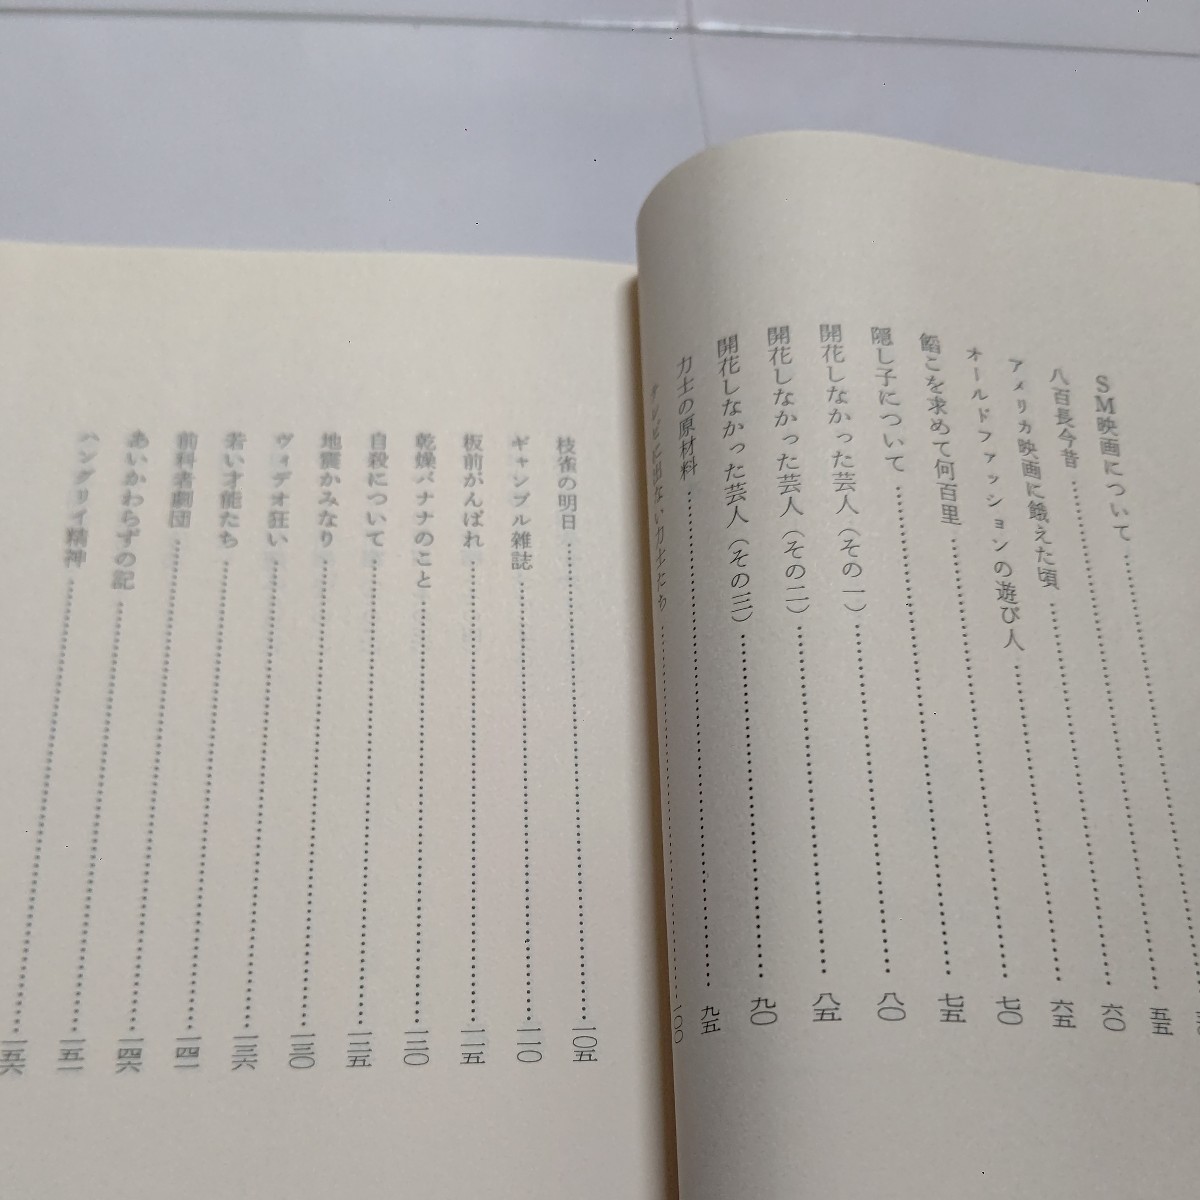 SM映画について
八百長今昔……五五
アメリカ映画に餓えた頃……六〇
オールドファッションの遊び人……六五
餡こを求めて何百里……七〇
隠し子について……七五
開花しなかった芸人（その一）……八〇
開花しなかった芸人（その二）……八五
開花しなかった芸人（その三）……九〇
力士の原材料……九五
テレビに出ない力士たち……一〇〇
枝雀の明日……一〇五
ギャンブル雑誌……一一〇
板前がんばれ……一一五
乾燥バナナのこと……一二〇
自殺について……一二五
地震かみなり……一三〇
ヴィデオ狂い……一三六
若い才能たち……一四一
前科者劇団……一四六
あいかわらずの記……一五一
ハングリイ精神……一五六